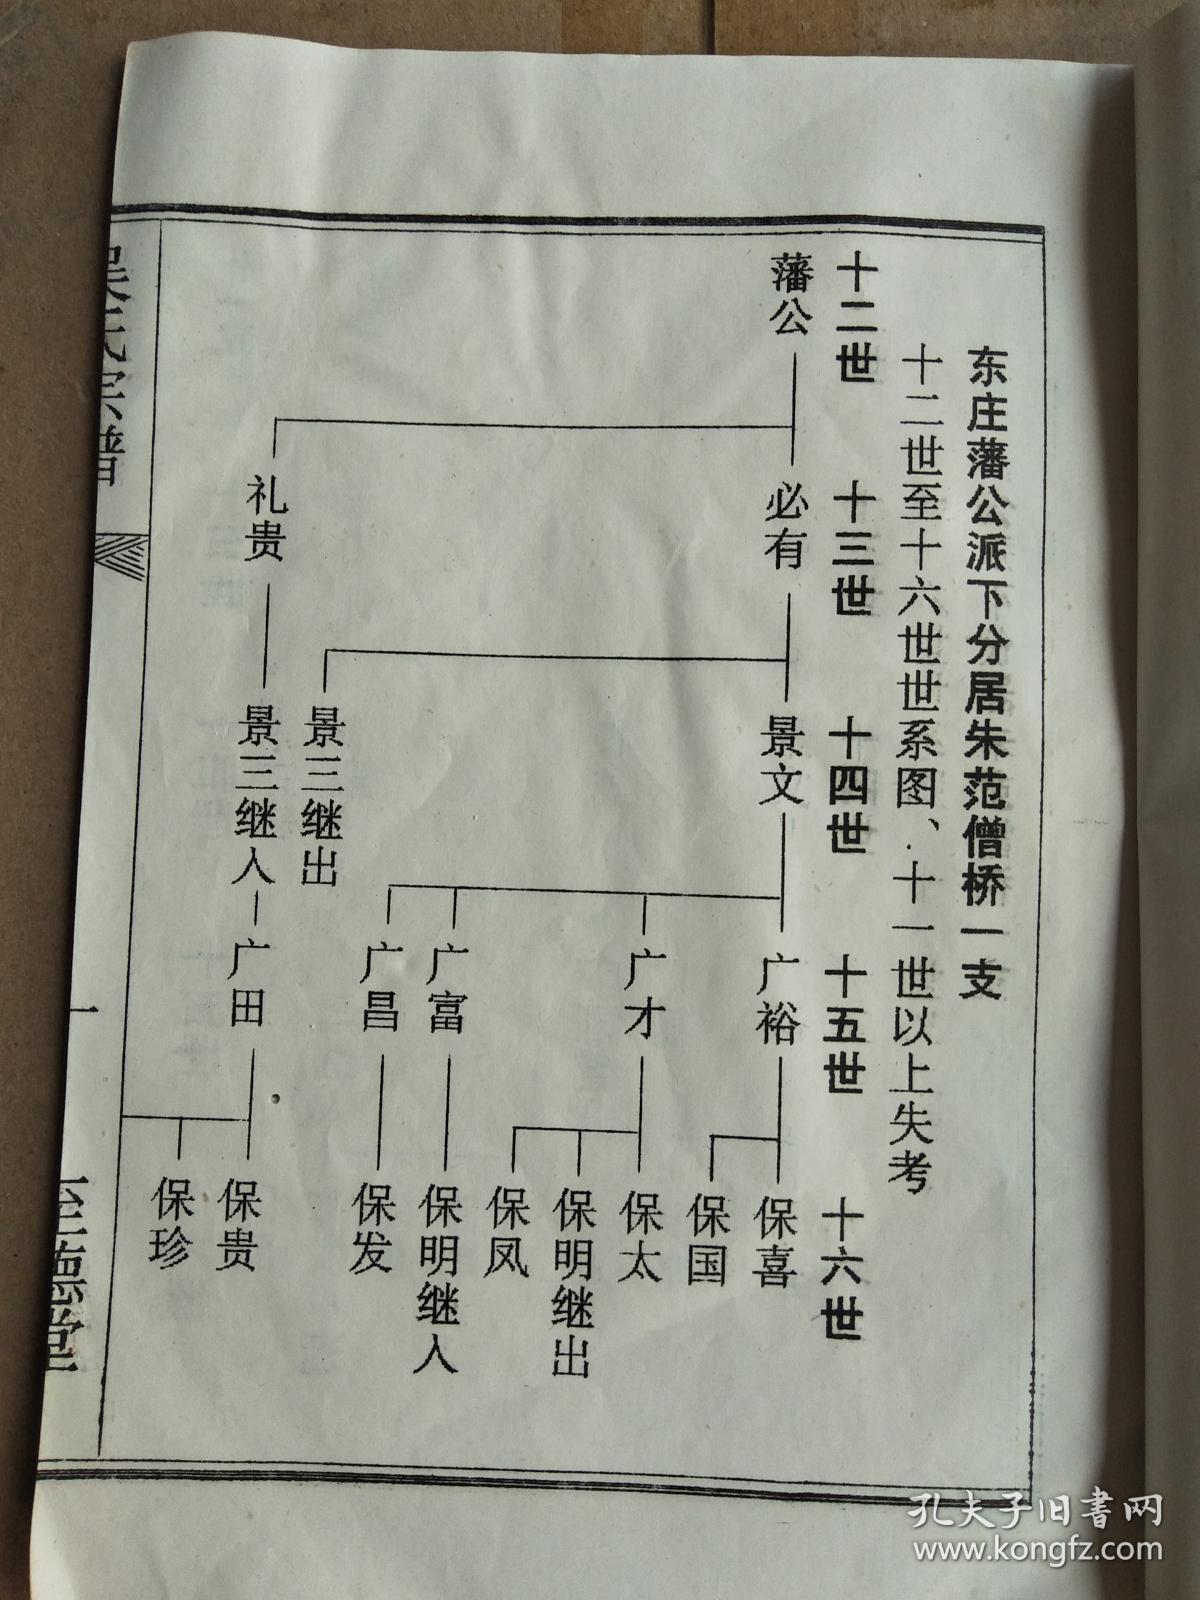 东庄藩公派下分居朱范僧桥一支
十二世至十六世世系图、十一世以上失考
十二世
十三世
十四世
十五世
十六世
藩公
必有
景文
广裕
保喜
保国
广才
保太
保明继出
保凤
广富
保明继人
广昌
保发
景三继出
礼贵
景三继人
广田
保贵
保珍
吴氏宗谱
一
至德堂
孔夫子旧书网
www.kongfz.com